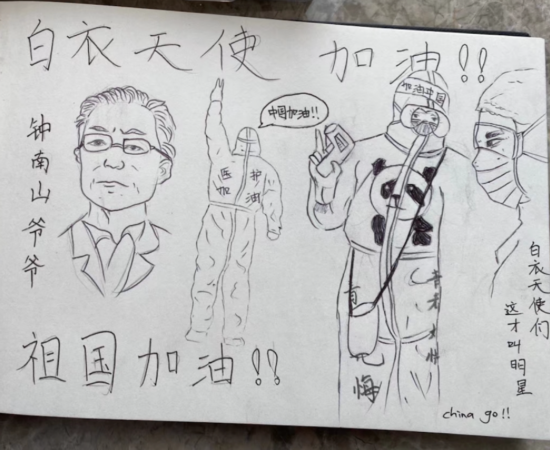 白衣天使 加油!!
钟南山爷爷
中国加油!!
医护
加油
加油中国
无悔
白衣天使们
这才叫明星
祖国加油!!
china go!!